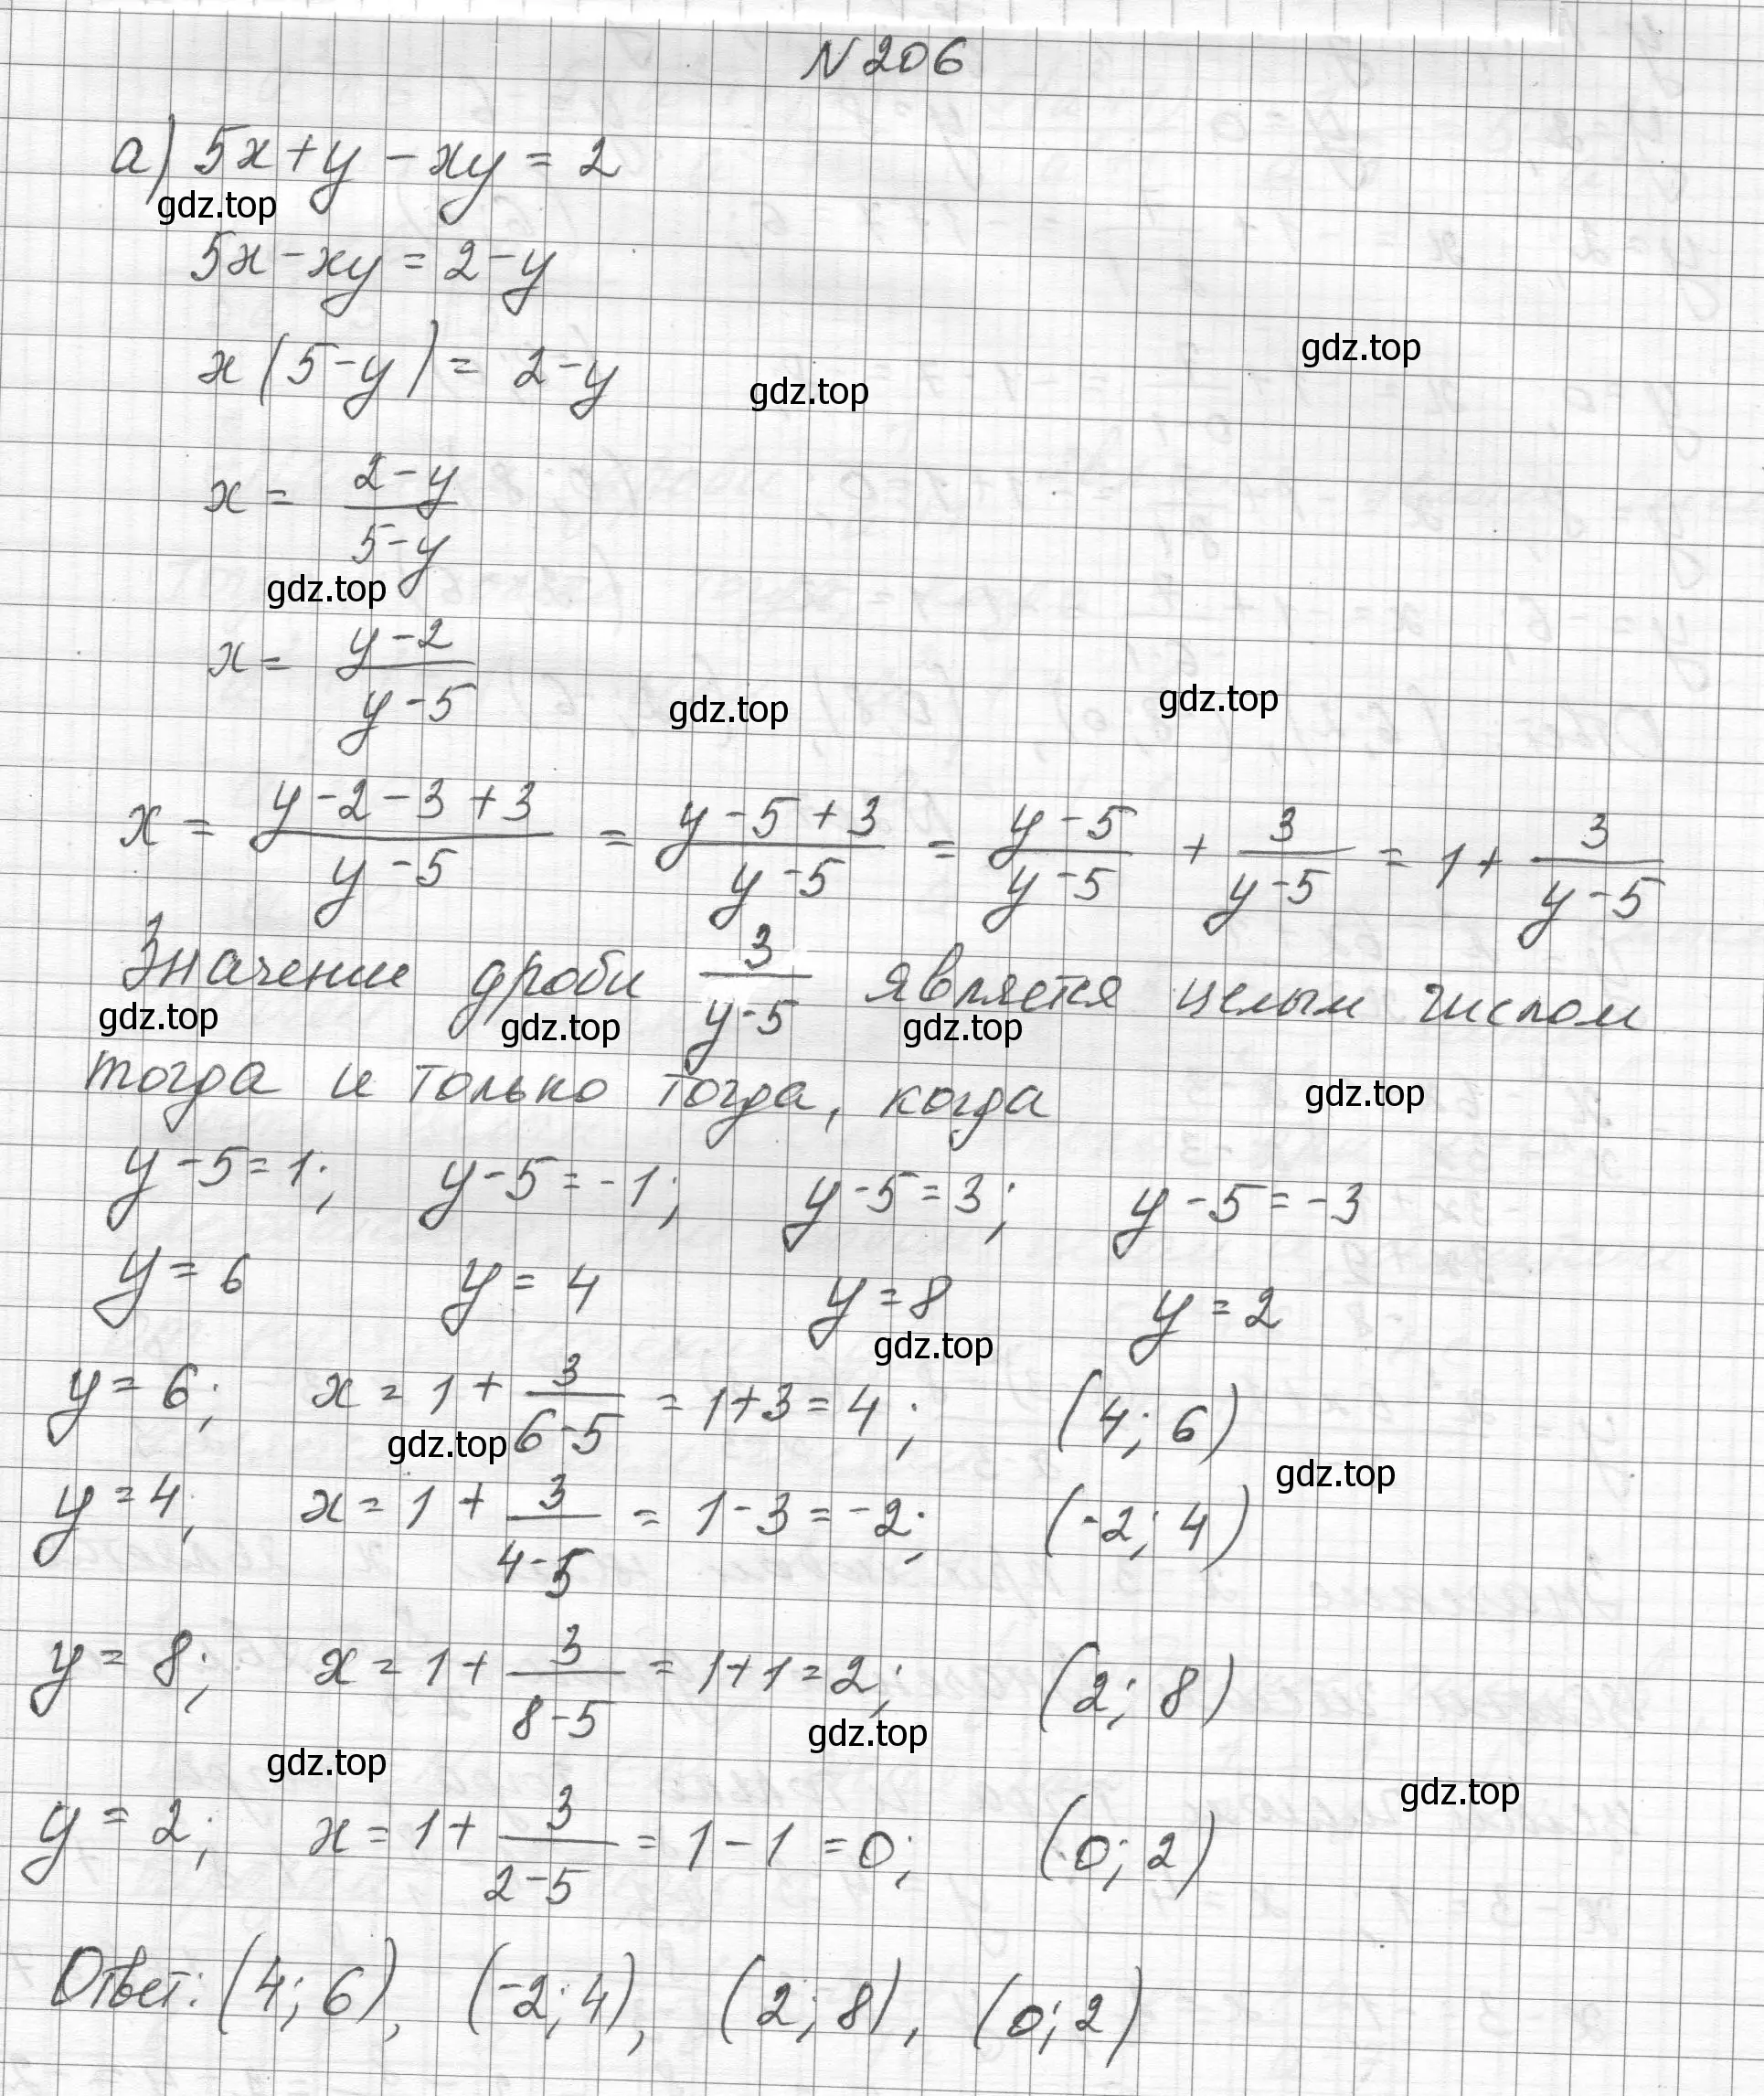 N 206
а) 5x + y - xy = 2
gdz.top
5x - xy = 2 - y
x(5 - y) = 2 - y
gdz.top
gdz.top
x = (2 - y)/(5 - y)
gdz.top
x = (y - 2)/(y - 5)
gdz.top
gdz.top
x = (y - 2 - 3 + 3)/(y - 5) = (y - 5 + 3)/(y - 5) = (y - 5)/(y - 5) + 3/(y - 5) = 1 + 3/(y - 5)
Значение дроби 3/(y - 5) является целым числом
gdz.top gdz.top gdz.top
тогда и только тогда, когда
gdz.top
y - 5 = 1; y - 5 = -1; y - 5 = 3; y - 5 = -3
y = 6 y = 4 y = 8 y = 2
gdz.top
y = 6; x = 1 + 3/(6 - 5) = 1 + 3 = 4; (4; 6)
gdz.top
gdz.top
y = 4; x = 1 + 3/(4 - 5) = 1 - 3 = -2; (-2; 4)
y = 8; x = 1 + 3/(8 - 5) = 1 + 1 = 2; (2; 8)
gdz.top
gdz.top
gdz.top
y = 2; x = 1 + 3/(2 - 5) = 1 - 1 = 0; (0; 2)
Ответ: (4; 6), (-2; 4), (2; 8), (0; 2)